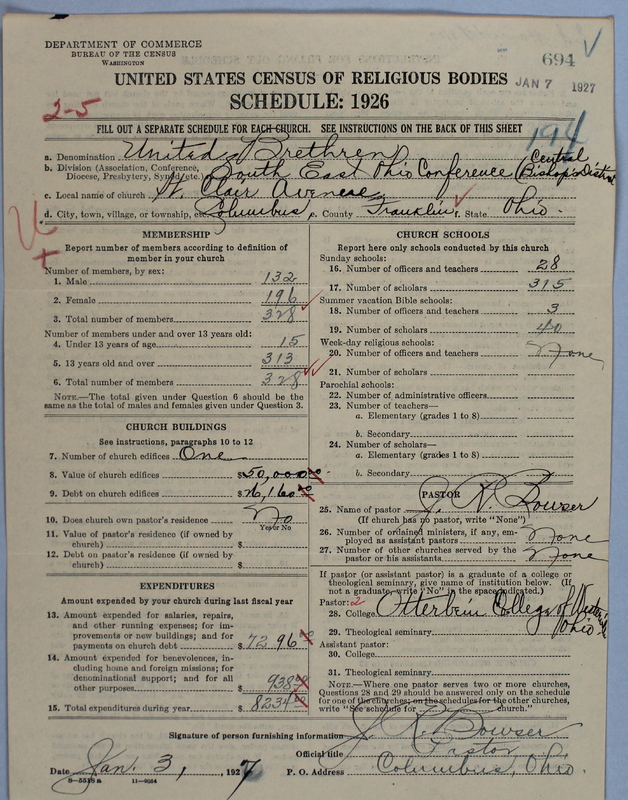 DEPARTMENT OF COMMERCE
BUREAU OF THE CENSUS
WASHINGTON
694
UNITED STATES CENSUS OF RELIGIOUS BODIES
JAN 7 1927
SCHEDULE: 1926
2-5
FILL OUT A SEPARATE SCHEDULE FOR EACH CHURCH. SEE INSTRUCTIONS ON THE BACK OF THIS SHEET
194
a. Denomination United Brethren
b. Division (Association, Conference, Diocese, Presbytery, Synod, etc.) South East Ohio Conference (Central Bishop's District
c. Local name of church St. Clair Avenue
d. City, town, village, or township, Columbus, e. County Franklin f. State Ohio.
MEMBERSHIP
Report number of members according to definition of
member in your church
Number of members, by sex:
1. Male 132
2. Female 196
3. Total number of members 328
Number of members under and over 13 years old:
4. Under 13 years of age 15
5. 13 years old and over 313
6. Total number of members 328
NOTE.—The total given under Question 6 should be
same as the total of males and females given under Question 3.
CHURCH BUILDINGS
See instructions, paragraphs 10 to 12
7. Number of church edifices One
8. Value of church edifices $50,000
9. Debt on church edifices
10. Does church own pastor's residence No
Yes or No
11. Value of pastor's residence (if owned by
church) $
12. Debt on pastor's residence (if owned by
church) $
EXPENDITURES
Amount expended by your church during last fiscal year
13. Amount expended for salaries, repairs,
and other running expenses; for im-
provements or new buildings; and for
payments on church debt $7296
14. Amount expended for benevolences, in-
cluding home and foreign missions; for
denominational support; and for all
other purposes $938
15. Total expenditures during year $8234
CHURCH SCHOOLS
Report here only schools conducted by this church
Sunday schools:
16. Number of officers and teachers 28
17. Number of scholars 315
Summer vacation Bible schools:
18. Number of officers and teachers 3
19. Number of scholars 40
Week-day religious schools:
20. Number of officers and teachers None
21. Number of scholars
Parochial schools:
22. Number of administrative officers
23. Number of teachers—
a. Elementary (grades 1 to 8)
b. Secondary
24. Number of scholars—
a. Elementary (grades 1 to 8)
b. Secondary
PASTOR
25. Name of pastor J. R. Bowser
(If church has no pastor, write "None")
26. Number of ordained ministers, if any, em-
ployed as assistant pastors None
27. Number of other churches served by the
pastor or his assistants None
If pastor (or assistant pastor) is a graduate of a college or
theological seminary, give name of institution below. (If
not a graduate, write "No" in the space indicated.)
Pastor: 2
28. College Otterbein College of Ohio
29. Theological seminary
Assistant pastor:
30. College
31. Theological seminary
NOTE.—Where one pastor serves two or more churches,
Questions 28 and 29 should be answered only on the schedule
for one of the churches; on the schedules for the other churches,
write "See schedule for church."
Signature of person furnishing information J. R. Bowser
Official title Pastor
Date Jan. 3, 1927 P. O. Address Columbus, Ohio
8—5518a 11—9564